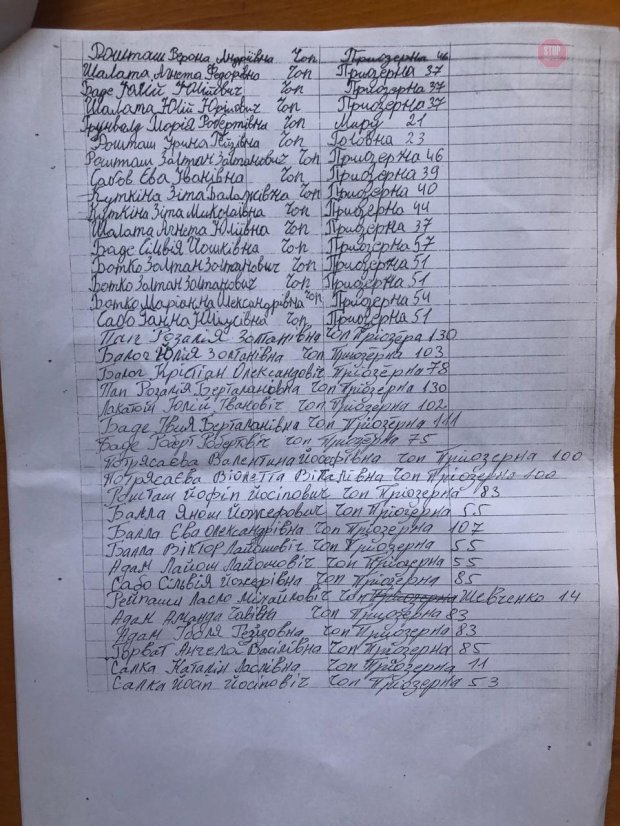 STOP
Рошташ Верона Андріївна Чоп Приозерна 46
Шалата Агнета Федорівна Чоп Приозерна 37
Баде Юлій Юлійович Чоп Приозерна 37
Шалата Юлій Юрійович Чоп Приозерна 37
Грунвалд Марія Робертівна Чоп Миру 21
Рошташ Ірина Гейзівна Чоп Головна 23
Рошташ Золтан Золтанович Чоп Приозерна 46
Сабов Ева Іванівна Чоп Приозерна 39
Куткіна Зіта Балажівна Чоп Приозерна 40
Куткіна Зіта Миколаївна Чоп Приозерна 44
Шалата Агнета Юліївна Чоп Приозерна 37
Баде Сілвія Йошківна Чоп Приозерна 57
Ботко Золтан Золтанович Чоп Приозерна 51
Ботко Золтан Золтанович Чоп Приозерна 51
Ботко Маріанна Олександрівна Чоп Приозерна 54
Сабо Ганна Юлиусівна Чоп Приозерна 51
Розалія Золтанівна Чоп Пріозера 130
Балог Юлия Золтанівна Чоп Пріозерна 103
Балог Крістіан Олександовіч Пріозерна 78
Пап Розалія Берталанівна Чоп Пріозерна 130
Лакатош Юлій Івановіч Чоп Пріозерна 102
Баде Берталанівна Чоп Пріозерна 111
Баде Роберт Чоп Пріозерна 75
Котрясаєва Валентина Йосефівна Чоп Приозерна 100
Котрясаєва Віолетта Віталівна Чоп Пріозерна 100
Рошташ Йосіпович Чоп Пріозерна 83
Балла Янош Йожерович Чоп Пріозерна 55
Балла Єва Олександрівна Чоп Пріозерна 107
Балла Віктор Лайошовіч Чоп Пріозерна 55
Адам Лайош Лайошовіч Чоп Пріозерна 55
Сабо Сілвія Йожерівна Чоп Пріозерна 85
Ласло Міхайловіч Чоп Пріозерна Шевченко 14
Адам Аманда Чоп Пріозерна 83
Адам Гейзовна Чоп Пріозерна 83
Горват Ангела Василівна Чоп Пріозерна 85
Салка Каталін Ласлівна Чоп Пріозерна 11
Салка Йосіп Йосіповіч Чоп Пріозерна 53